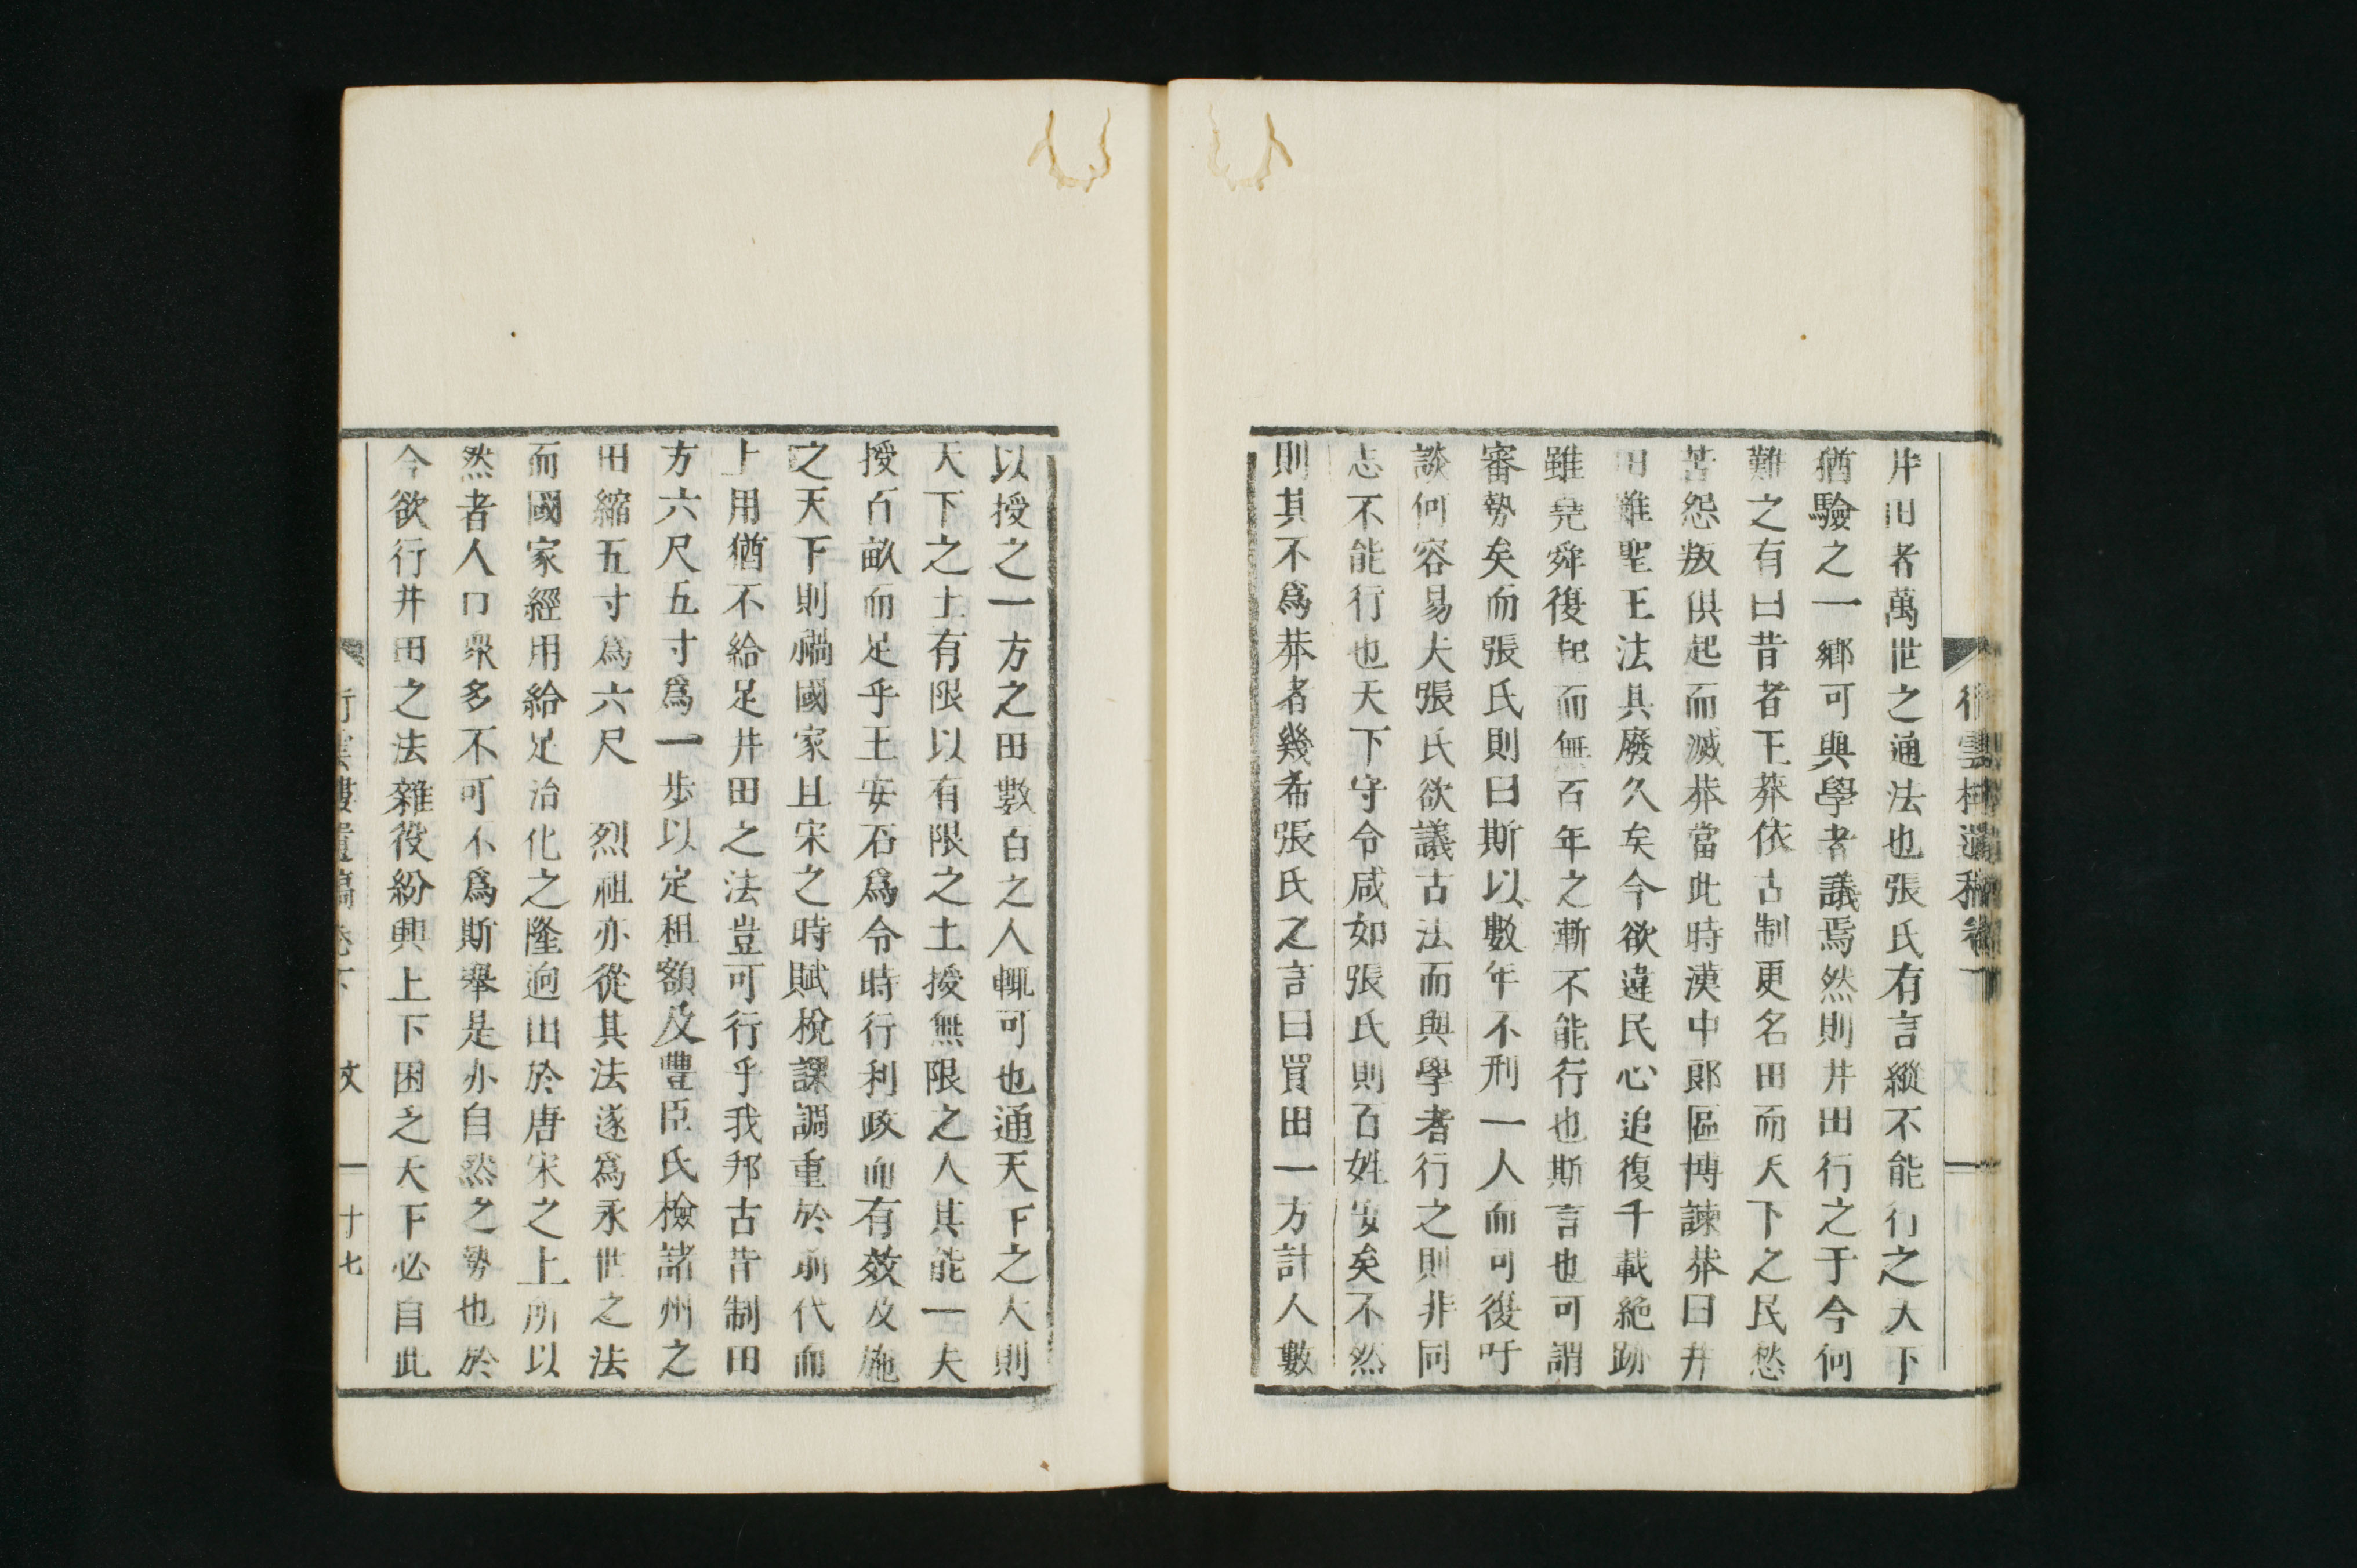 井田者萬世之通法也張氏有言縱不能行之天下
猶驗之一鄉可與學者議焉然則井田行之于今何
難之有曰昔者王莽依古制更名田而天下之民愁
苦怨叛俱起而滅莽當此時漢中郎區博諫莽曰井
田雖聖王法其廢久矣今欲違民心追復千載絕跡
雖堯舜復起而無百年之漸不能行也斯言也可謂
審勢矣而張氏則曰斯以數年不刑一人而可復吁
談何容易夫張氏欲議古法而與學者行之則非同
志不能行也天下守令咸如張氏則百姓安矣不然
則其不爲莽者幾希張氏之言曰買田一方計人數
以授之一方之田數百之人輒可也通天下之大則
天下之土有限以有限之土授無限之人其能一夫
授百畝而足乎王安石爲令時行利政而有效及施
之天下則禍國家且宋之時賦稅課調重於前代而
上用猶不給足井田之法豈可行乎我邦古昔制田
方六尺五寸爲一步以定租額及豐臣氏檢諸州之
田縮五寸爲六尺 烈祖亦從其法遂爲永世之法
而國家經用給足治化之隆迥出於唐宋之上所以
然者人口衆多不可不爲斯舉是亦自然之勢也於
今欲行井田之法雜役紛興上下困乏天下必自此
行雲樓遺稿卷下 文 十七